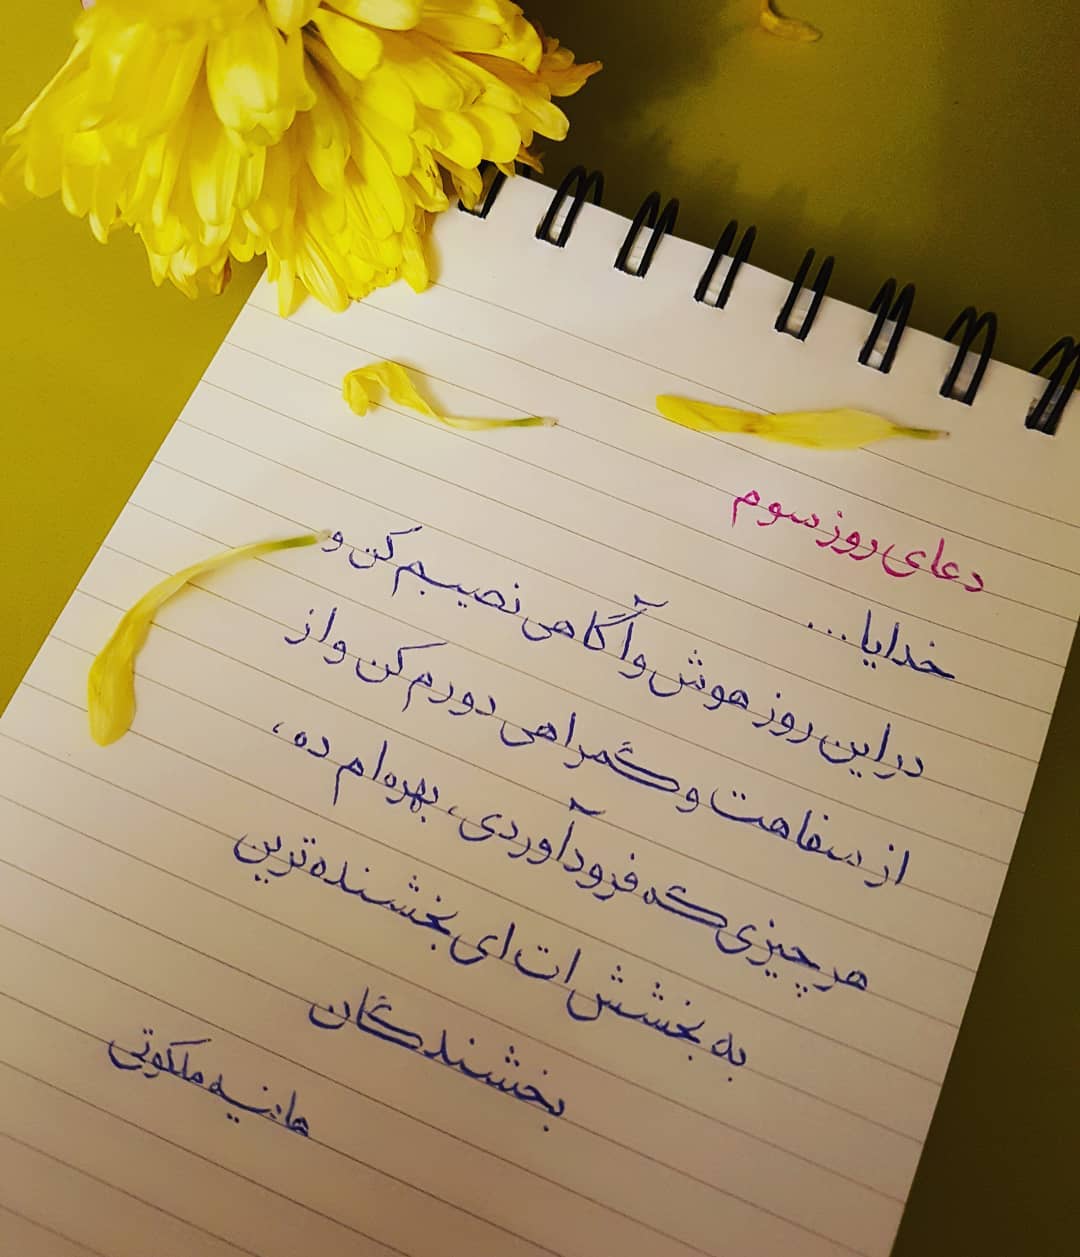 دعای روز سوم
خدایا...
در این روز هوش و آگاهی نصیبم کن و
از سفاهت و گمراهی دورم کن و از
هر چیزی که فرود آوردی، بهره ام ده،
به بخشش ات ای بخشنده ترین
بخشندگان
هانیه ملکوتی